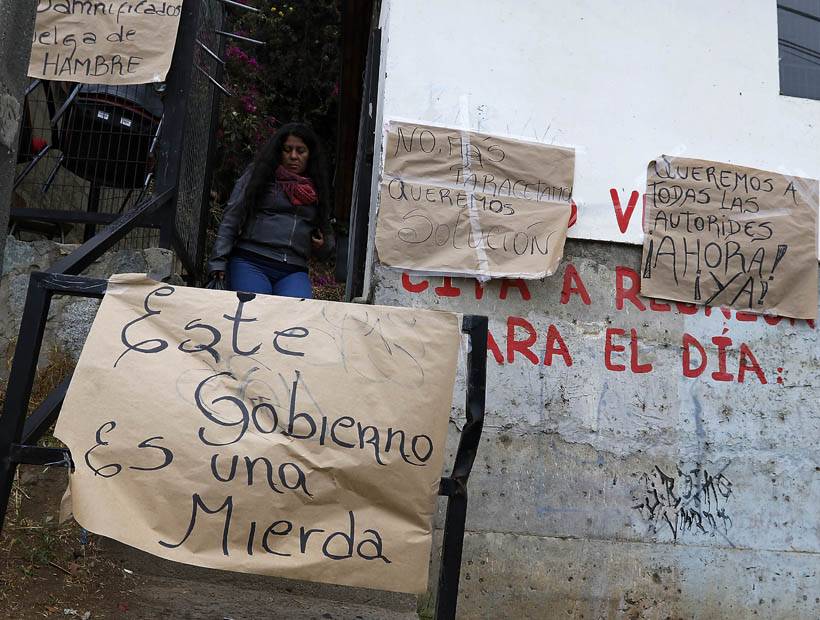 Damnificados
elga de
HAMBRE
NO, MAS
PARACETAMOL
QUEREMOS
SOLUCIÓN
QUEREMOS A
TODAS LAS
AUTORIDES
¡AHORA!
¡YA!
CITA A REUNION
PARA EL DÍA:
Esté
Gobierno
Es una
Mierda